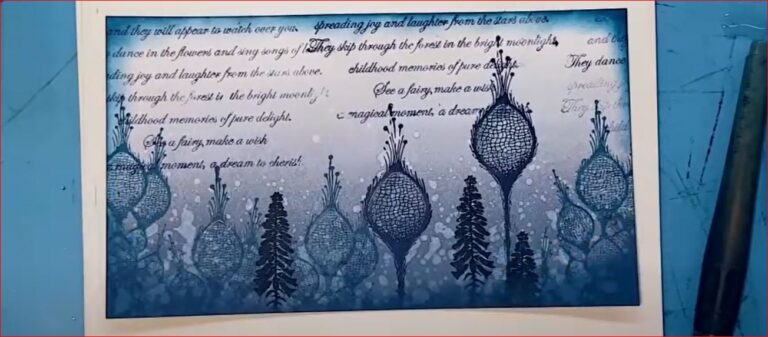 and they will appear to watch over you.
dance in the flowers and sing songs of
ding joy and laughter from the stars above.
skip through the forest in the bright moonlight
childhood memories of pure delight.
See a fairy, make a wish
magical moment, a dream to cherish.
spreading joy and laughter from the stars above.
They skip through the forest in the bright moonlight,
childhood memories of pure delight.
See a fairy, make a wish
magical moment, a dream
and
They dance
spreading
They skip th